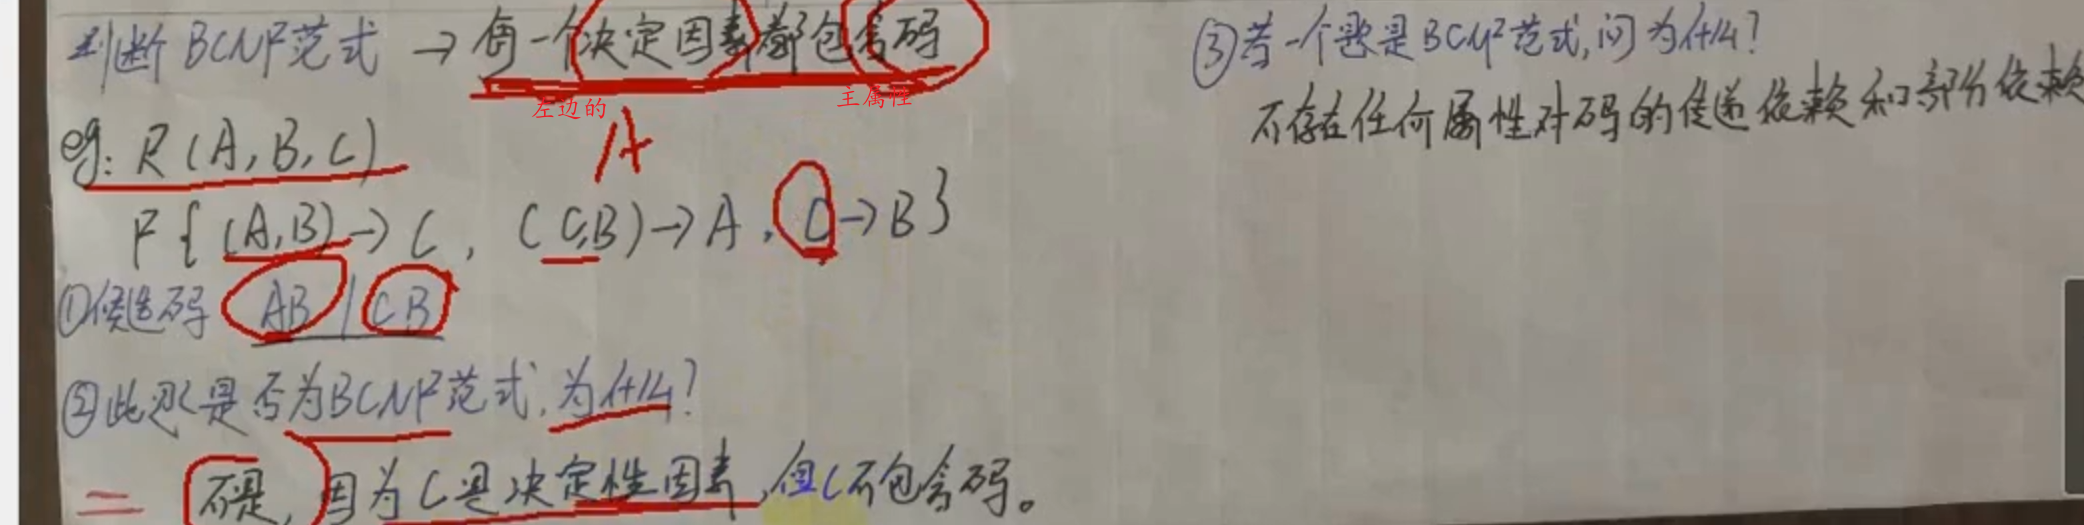 判断BCNF范式 → 每一个决定因素都包含码
左边的
主属性
A
eg: R(A,B,C)
F{(A,B)→C, (C,B)→A, C→B}
①候选码 AB | CB
②此题是否为BCNF范式,为什么?
不是,因为C是决定性因素,但C不包含码。
③若一个题是BCNF范式,问为什么?
不存在任何属性对码的传递依赖和部分依赖